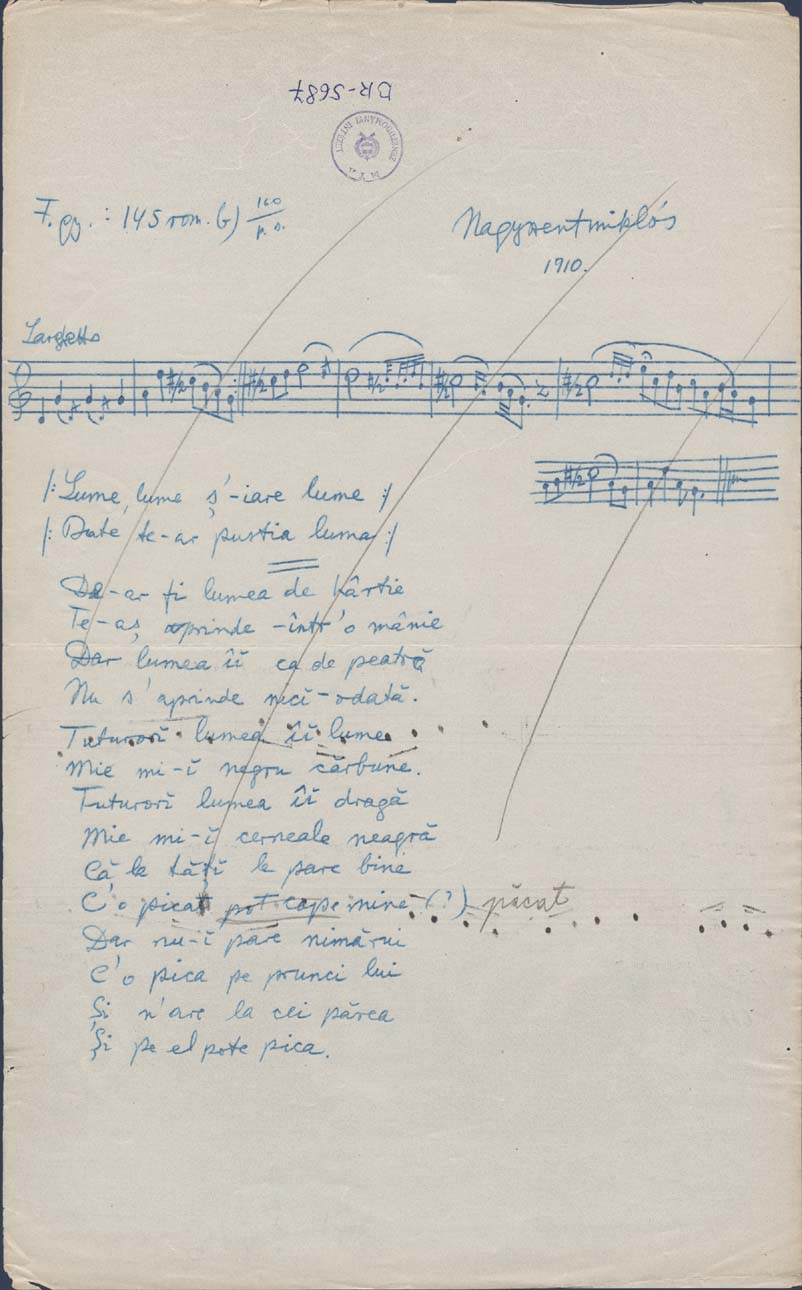 BR-5687
M.T.A.
F. gy.: 145 rom. b) 160/p. s.
Nagyszentmiklós
1910.
Larghetto
|: Lume, lume ș'-iare lume :|
|: Bate, te-ar pustia luma :|
De-ar fi lumea de hârtie
Te-aș aprinde -într'o mânie
Dar lumea îĭ ca de peatră
Nu s'aprinde nicĭ-odată.
Tuturorĭ lumea îĭ lume
Mie mi-ĭ negru cărbune.
Tuturorĭ lumea îĭ dragă
Mie mi-ĭ cerneale neagră
Că la tățĭ le pare bine
C'o picat pot cape mine (?) păcat
Dar nu-ĭ pare nimărui
C'o pica pe prunci lui
Și n'are la cei părea
Și pe el pote pica.